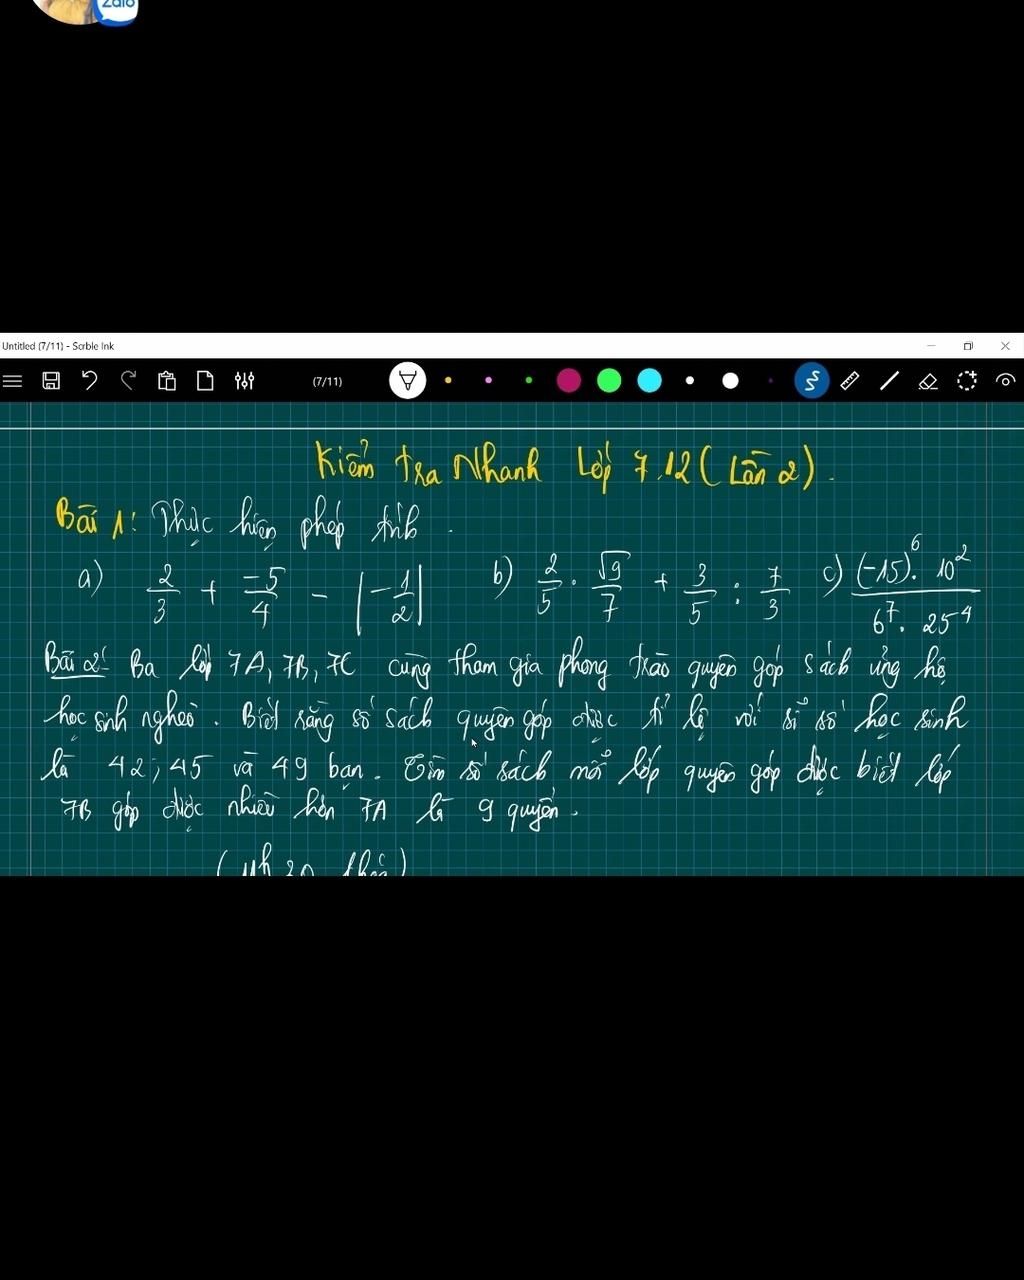 Zalo
Untitled (7/11) - Scrble Ink
(7/11)
Kiểm tra Nhanh Lớp 7.12 (Lần 2).
Bài 1: Thực hiện phép tính.
a) 2/3 + -5/4 - |-1/2| b) 2/5 . √9/7 + 3/5 : 7/3 c) (-15)^6 . 10^2 / 6^7 . 25^4
Bài 2: Ba lớp 7A, 7B, 7C cùng tham gia phong trào quyên góp sách ủng hộ
học sinh nghèo. Biết rằng số sách quyên góp được tỉ lệ với sĩ số học sinh
là 42; 45 và 49 bạn. Tìm số sách mỗi lớp quyên góp được biết lớp
7B góp được nhiều hơn 7A là 9 quyển.